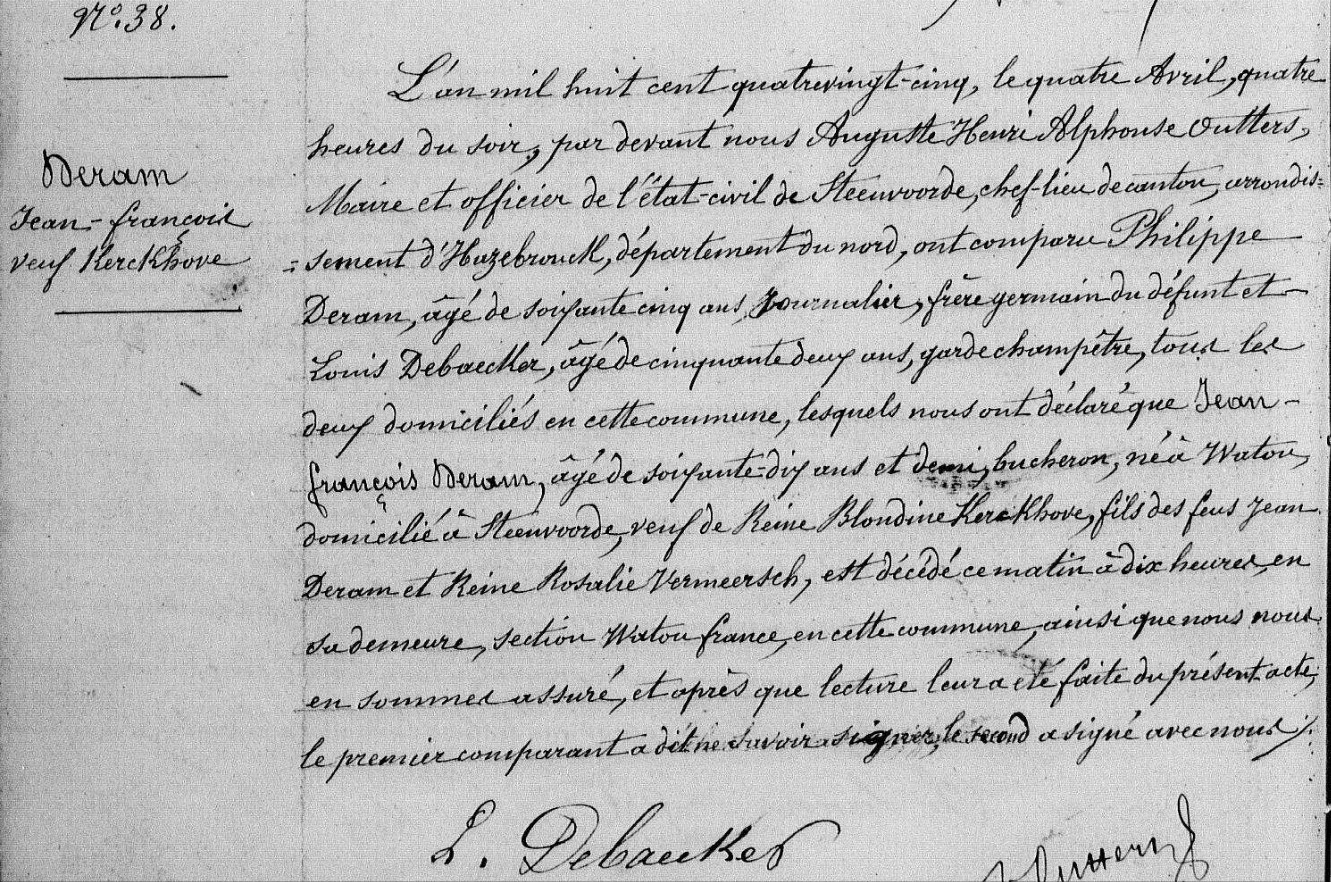 N°. 38.
Deram
Jean-françois
veuf Kerckhove
L'an mil huit cent quatrevingt-cinq, le quatre Avril, quatre
heures du soir, par devant nous Auguste Henri Alphonse Outters,
Maire et officier de l'état-civil de Steenvoorde, chef-lieu de canton, arrondis=
=sement d'Hazebrouck, département du nord, ont comparu Philippe
Deram, âgé de soixante cinq ans, Journalier, frère germain du défunt et
Louis Debaecker, âgé de cinquante deux ans, garde champêtre, tous les
deux domiciliés en cette commune, lesquels nous ont déclaré que Jean-
françois Deram, âgé de soixante-dix ans et demi, bucheron, né à Watou,
domicilié à Steenvoorde, veuf de Reine Blondine Kerckhove, fils des feus Jean
Deram et Reine Rosalie Vermeersch, est décédé ce matin à dix heures, en
sa demeure, section Watou france, en cette commune, ainsi que nous nous
en sommes assuré, et après que lecture leur a été faite du présent acte,
le premier comparant a dit ne savoir signer, le second a signé avec nous ./.
L. Debaecker